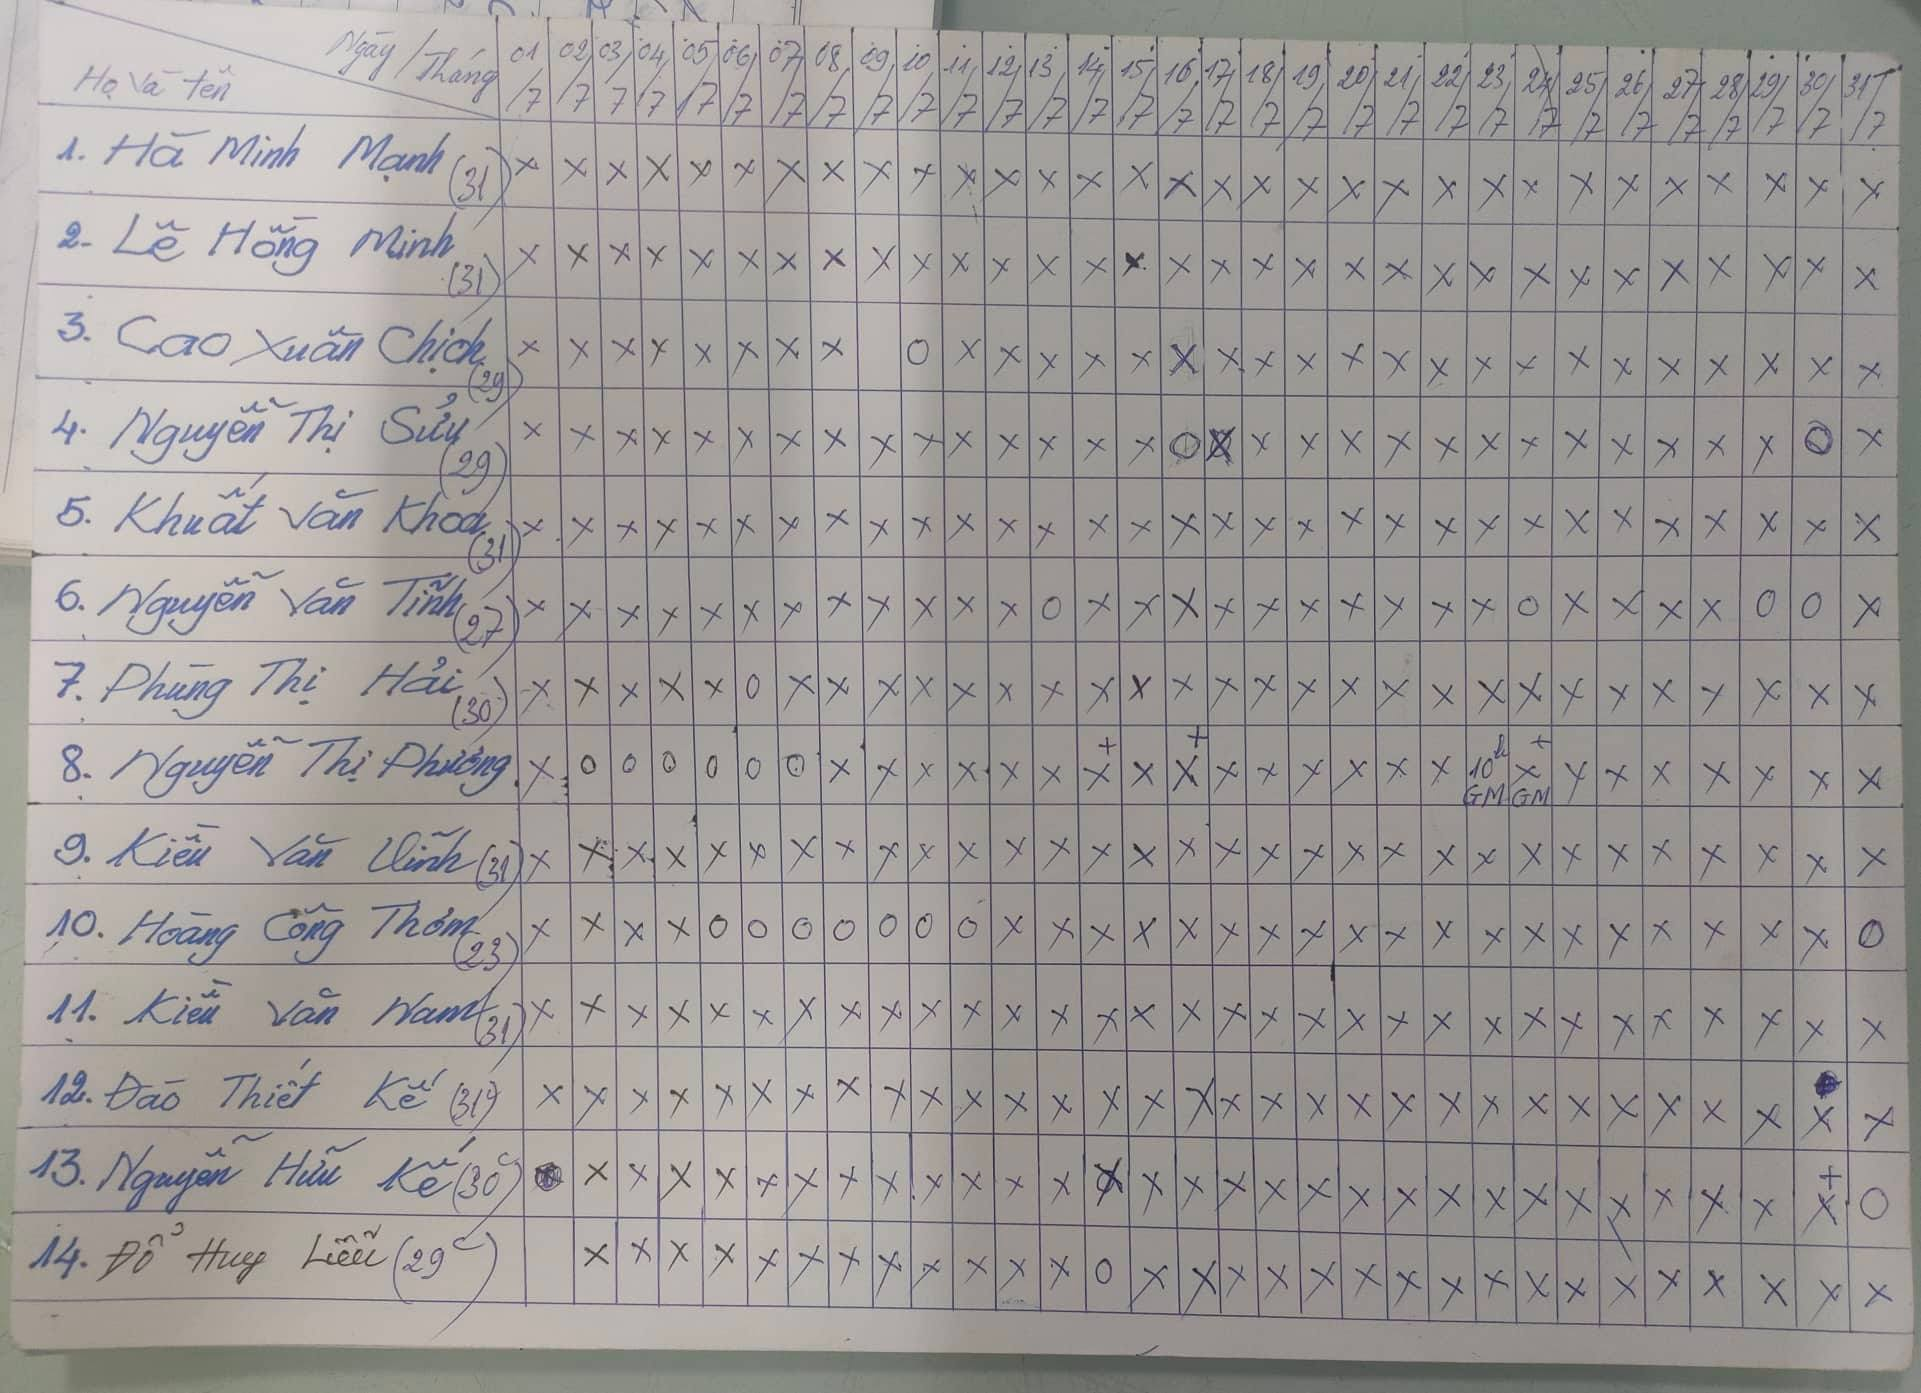 Ngày/Tháng 01/7 02/7 03/7 04/7 05/7 06/7 07/7 08/7 09/7 10/7 11/7 12/7 13/7 14/7 15/7 16/7 17/7 18/7 19/7 20/7 21/7 22/7 23/7 24/7 25/7 26/7 27/7 28/7 29/7 30/7 31/7
Họ và tên
1. Hà Minh Mạnh (31) x x x x x x x x x x x x x x x x x x x x x x x x x x x x x x x
2. Lê Hồng Minh (31) x x x x x x x x x x x x x x x x x x x x x x x x x x x x x x x
3. Cao Xuân Chịch (29) x x x x x x x x O x x x x x x x x x x x x x x x x x x x x x
4. Nguyễn Thị Sửu (29) x x x x x x x x x x x x x x x O x x x x x x x x x x x x x O x
5. Khuất Văn Khoa (31) x x x x x x x x x x x x x x x x x x x x x x x x x x x x x x x
6. Nguyễn Văn Tĩnh (27) x x x x x x x x x x x x O x x x x x x x x x x O x x x x O O x
7. Phùng Thị Hải (30) x x x x x O x x x x x x x x x x x x x x x x x x x x x x x x x
8. Nguyễn Thị Phương x O O O O O O x x x x x x x+ x x+ x x x x x x 10h GM x+ GM x x x x x x x
9. Kiều Văn Vĩnh (31) x x x x x x x x x x x x x x x x x x x x x x x x x x x x x x x
10. Hoàng Công Thơm (23) x x x x O O O O O O O x x x x x x x x x x x x x x x x x x x O
11. Kiều Văn Nam (31) x x x x x x x x x x x x x x x x x x x x x x x x x x x x x x x
12. Đào Thiết Kế (31) x x x x x x x x x x x x x x x x x x x x x x x x x x x x x x x
13. Nguyễn Hữu Kế (30c) x x x x x x x x x x x x x x x x x x x x x x x x x x x x x+ O
14. Đỗ Huy Liễu (29c) x x x x x x x x x x x x O x x x x x x x x x x x x x x x x x